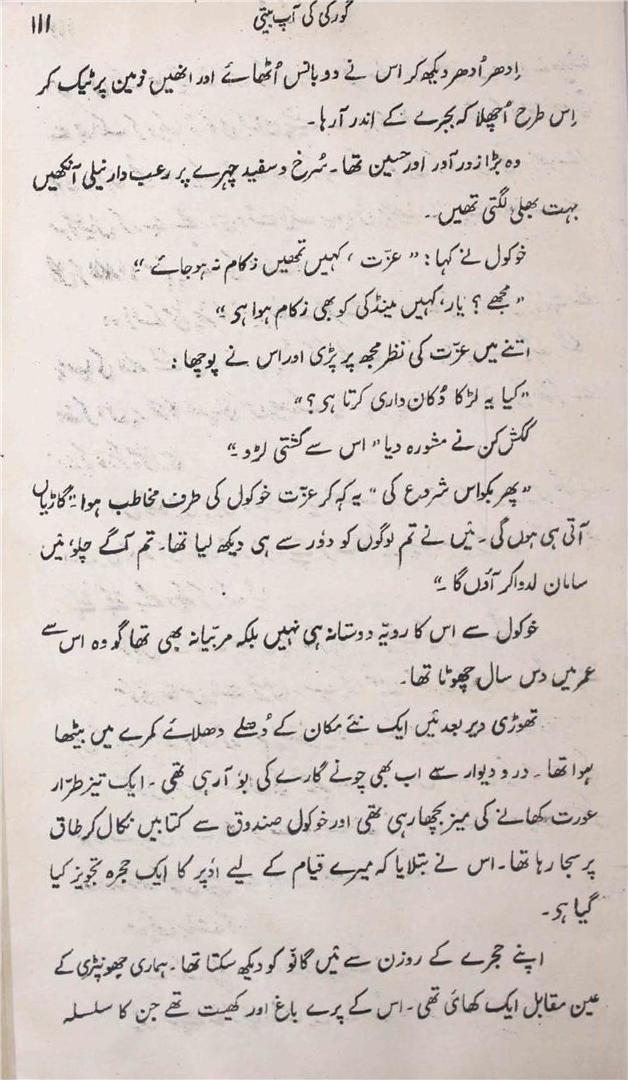 گورکی کی آپ بیتی ۱۱۱
اِدھر اُدھر دیکھ کر اس نے دو بانس اُٹھائے اور انھیں زمین پر ٹیک کر
اِس طرح اُچھلا کہ بجرے کے اندر آرہا۔
وہ بڑا زور آور اور حسین تھا۔ سُرخ و سفید چہرے پر رعب دار نیلی آنکھیں
بہت بھلی لگتی تھیں۔
خوکول نے کہا: ”عزّت، کہیں تمھیں زکام نہ ہوجائے۔“
”مجھے؟ یار، کہیں مینڈکی کو بھی زکام ہوا ہی۔“
اتنے میں عزّت کی نظر مجھ پر پڑی اور اس نے پوچھا:
”کیا یہ لڑکا دُکان داری کرتا ہی؟“
ککش کن نے مشورہ دیا ”اس سے گشتی لڑو۔“
”پھر بکواس شروع کی“ یہ کہہ کر عزّت خوکول کی طرف مخاطب ہوا ”گاڑیاں
آتی ہی ہوں گی۔ مَیں نے تم لوگوں کو دوٗر سے ہی دیکھ لیا تھا۔ تم آگے چلو، مَیں
سامان لدوا کر آؤں گا۔“
خوکول سے اس کا رویّہ دوستانہ ہی نہیں بلکہ مربّیانہ بھی تھا گو وہ اس سے
عمر میں دس سال چھوٹا تھا۔
تھوڑی دیر بعد مَیں ایک نئے مکان کے دُھلے دھلائے کمرے میں بیٹھا
ہوا تھا۔ در و دیوار سے اب بھی چونے گارے کی بوٗ آرہی تھی۔ ایک تیز طرّار
عورت کھانے کی میز بچھا رہی تھی اور خوکول صندوق سے کتابیں نکال کر طاق
پر سجا رہا تھا۔ اس نے بتلایا کہ میرے قیام کے لیے اوٗپر کا ایک حجرہ تجویز کیا
گیا ہی۔
اپنے حجرے کے روزن سے مَیں گانْو کو دیکھ سکتا تھا۔ ہماری جھونپڑی کے
عین مقابل ایک کھائی تھی۔ اس کے پرے باغ اور کھیت تھے جن کا سلسلہ